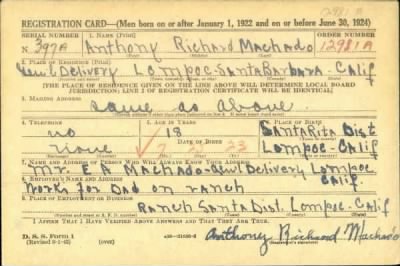 12981A
REGISTRATION CARD—(Men born on or after January 1, 1922 and on or before June 30, 1924)
SERIAL NUMBER 1. NAME (Print) ORDER NUMBER
N 397A Anthony Richard Machado 12981A
2. PLACE OF RESIDENCE (Print)
Gen'l Delivery Lompoc-Santa Barbara-Calif
[THE PLACE OF RESIDENCE GIVEN ON THE LINE ABOVE WILL DETERMINE LOCAL BOARD
JURISDICTION; LINE 2 OF REGISTRATION CERTIFICATE WILL BE IDENTICAL]
3. MAILING ADDRESS
same as above
4. TELEPHONE 5. AGE IN YEARS 6. PLACE OF BIRTH
no 18 Santa Rita Dist.
DATE OF BIRTH
none 23 Lompoc-Calif
7. NAME AND ADDRESS OF PERSON WHO WILL ALWAYS KNOW YOUR ADDRESS
Mr. E A Machado-Gen'l Delivery Lompoc
Calif.
8. EMPLOYER'S NAME AND ADDRESS
Works for Dad on ranch
9. PLACE OF EMPLOYMENT OR BUSINESS
Ranch Santa Dist. Lompoc-Calif
I AFFIRM THAT I HAVE VERIFIED ABOVE ANSWERS AND THAT THEY ARE TRUE.
D. S. S. Form 1
(over)
Anthony Richard Machado